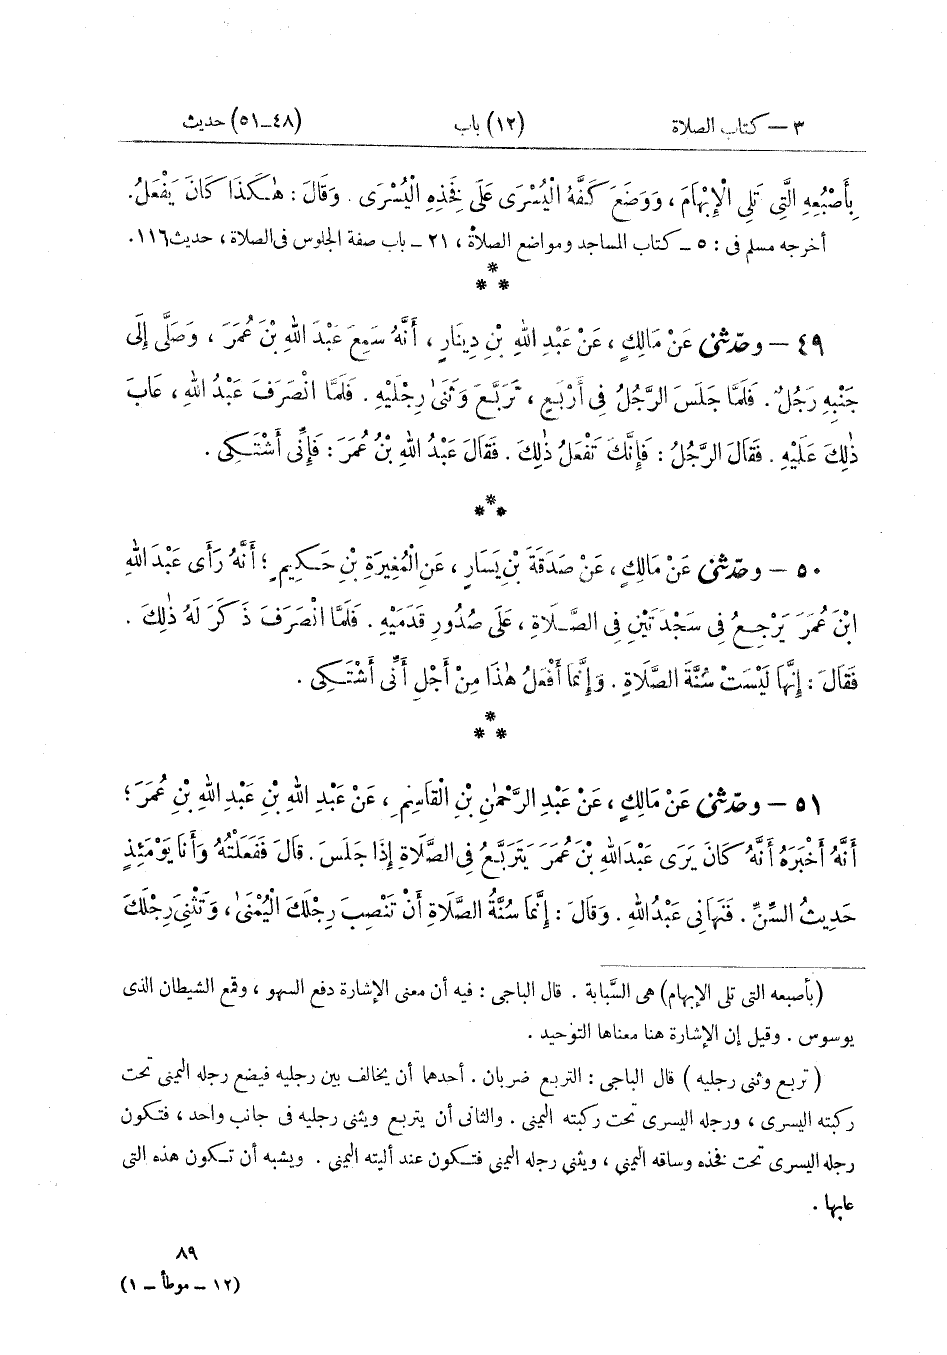 ٣ – كتاب الصلاة (١٢) باب (٤٨–٥١) حديث
بِأَصْبُعِهِ الَّتِي تَلِي الْإِبْهَامَ ، وَوَضَعَ كَفَّهُ الْيُسْرَى عَلَى فَخِذِهِ الْيُسْرَى . وَقَالَ : هٰكَذَا كَانَ يَفْعَلُ .
أخرجه مسلم فى : ٥ – كتاب المساجد ومواضع الصلاة ، ٢١ – باب صفة الجلوس فى الصلاة ، حديث ١١٦ .
*
* *
٤٩ – وحدّثنى عَنْ مَالِكٍ ، عَنْ عَبْدِ اللهِ بْنِ دِينَارٍ ، أَنَّهُ سَمِعَ عَبْدَ اللهِ بْنَ عُمَرَ ، وَصَلَّى إِلَى
جَنْبِهِ رَجُلٌ . فَلَمَّا جَلَسَ الرَّجُلُ فِي أَرْبَعٍ ، تَرَبَّعَ وَثَنَى رِجْلَيْهِ . فَلَمَّا انْصَرَفَ عَبْدُ اللهِ ، عَابَ
ذٰلِكَ عَلَيْهِ . فَقَالَ الرَّجُلُ : فَإِنَّكَ تَفْعَلُ ذٰلِكَ . فَقَالَ عَبْدُ اللهِ بْنُ عُمَرَ : فَإِنِّى أَشْتَكِى .
*
* *
٥٠ – وحدّثنى عَنْ مَالِكٍ ، عَنْ صَدَقَةَ بْنِ يَسَارٍ ، عَنِ الْمُغِيرَةِ بْنِ حَكِيمٍ ؛ أَنَّهُ رَأَى عَبْدَ اللهِ
ابْنَ عُمَرَ يَرْجِعُ فِى سَجْدَتَيْنِ فِى الصَّلَاةِ ، عَلَى صُدُورِ قَدَمَيْهِ . فَلَمَّا انْصَرَفَ ذَكَرَ لَهُ ذٰلِكَ .
فَقَالَ : إِنَّهَا لَيْسَتْ سُنَّةَ الصَّلَاةِ . وَإِنَّمَا أَفْعَلُ هٰذَا مِنْ أَجْلِ أَنِّى أَشْتَكِى .
*
* *
٥١ – وحدّثنى عَنْ مَالِكٍ ، عَنْ عَبْدِ الرَّحْمٰنِ بْنِ الْقَاسِمِ ، عَنْ عَبْدِ اللهِ بْنِ عَبْدِ اللهِ بْنِ عُمَرَ ؛
أَنَّهُ أَخْبَرَهُ أَنَّهُ كَانَ يَرَى عَبْدَ اللهِ بْنَ عُمَرَ يَتَرَبَّعُ فِى الصَّلَاةِ إِذَا جَلَسَ . قَالَ فَفَعَلْتُهُ وَأَنَا يَوْمَئِذٍ
حَدِيثُ السِّنِّ . فَنَهَانِى عَبْدُ اللهِ . وَقَالَ : إِنَّمَا سُنَّةُ الصَّلَاةِ أَنْ تَنْصِبَ رِجْلَكَ الْيُمْنَى ، وَتَثْنِىَ رِجْلَكَ
(بأصبعه التى تلى الإبهام) هى السَّبابة . قال الباجى : فيه أن معنى الإشارة دفع السهو ، وقمع الشيطان الذى
يوسوس . وقيل إن الإشارة هنا معناها التوحيد .
( تربع وثنى رجليه ) قال الباجى : التربع ضربان . أحدهما أن يخالف بين رجليه فيضع رجله اليمنى تحت
ركبته اليسرى ، ورجله اليسرى تحت ركبته اليمنى . والثانى أن يتربع ويثنى رجليه فى جانب واحد ، فتكون
رجله اليسرى تحت فخذه وساقه اليمنى ، ويثنى رجله اليمنى فتكون عند أليته اليمنى . ويشبه أن تكون هذه التى
عابها .
٨٩
(١٢ – موطأ – ١)